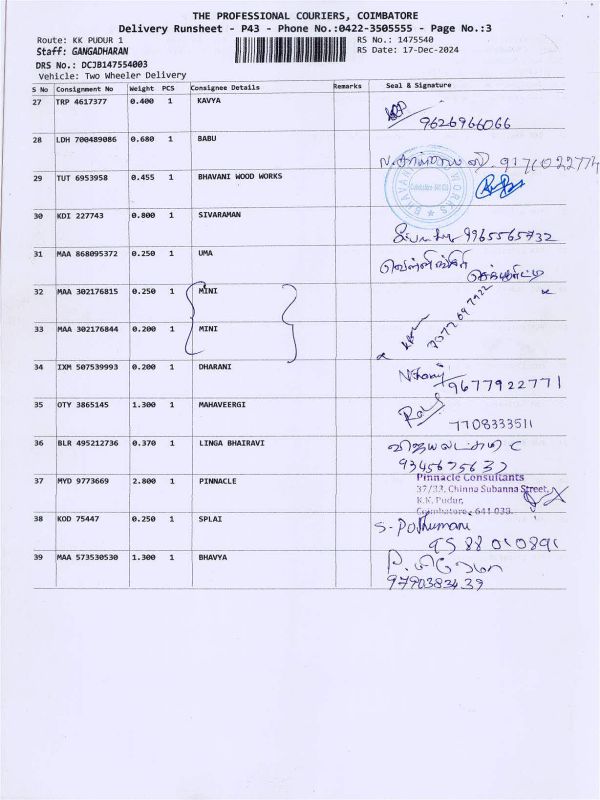 THE PROFESSIONAL COURIERS, COIMBATORE
Delivery Runsheet - P43 - Phone No.:0422-3505555 - Page No.:3
Route: KK PUDUR 1 RS No.: 1475540
Staff: GANGADHARAN RS Date: 17-Dec-2024
DRS No.: DCJB147554003
Vehicle: Two Wheeler Delivery
S No Consignment No Weight PCS Consignee Details Remarks Seal & Signature
27 TRP 4617377 0.400 1 KAVYA
9626966066
28 LDH 700489086 0.680 1 BABU
29 TUT 6953958 0.455 1 BHAVANI WOOD WORKS
30 KDI 227743 0.800 1 SIVARAMAN
9965565732
31 MAA 868095372 0.250 1 UMA
32 MAA 302176815 0.250 1 MINI
33 MAA 302176844 0.200 1 MINI
34 IXM 507539993 0.200 1 DHARANI
9677922771
35 OTY 3865145 1.300 1 MAHAVEERGI
7708333511
36 BLR 495212736 0.370 1 LINGA BHAIRAVI
37 MYD 9773669 2.800 1 PINNACLE
Pinnacle Consultants
37/33, Chinna Subanna Street,
K.K. Pudur,
Coimbatore - 641 038.
38 KOD 75447 0.250 1 SPLAI
9588010891
39 MAA 573530530 1.300 1 BHAVYA
9790383439